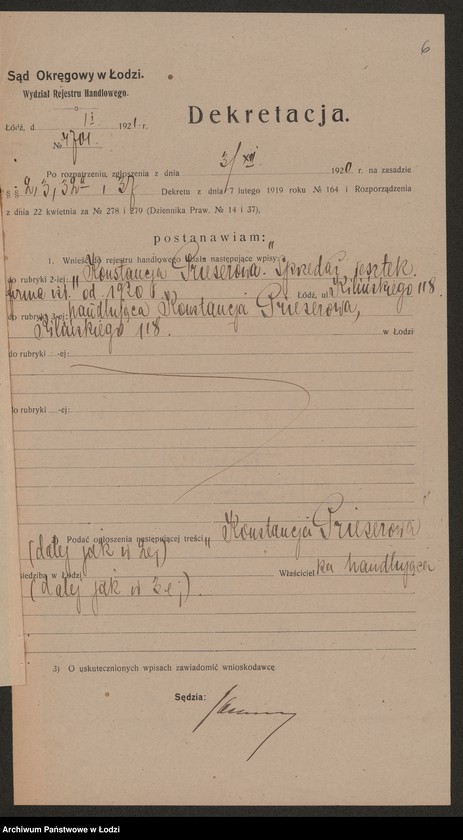 6
Sąd Okręgowy w Łodzi.
Wydział Rejestru Handlowego.
Łódź, d. 1/I 1921 r.
№ 4701.
Dekretacja.
Po rozpatrzeniu, zgłoszenia z dnia 3/XII 1920 r. na zasadzie
§ § 2, 3, 32a, i 37 Dekretu z dnia 7 lutego 1919 roku № 164 i Rozporządzenia
z dnia 22 kwietnia za № 278 i 279 (Dziennika Praw. № 14 i 37),
postanawiam:
1. Wnieść do rejestru handlowego działu następujące wpisy: „
do rubryki 2-iej: Konstancja Prieserowa. Sprzedaż resztek.
firma ist." od 1920 r. Łódź, ul. Kilińskiego 118.
do rubryki 3-ej: handlująca Konstancja Prieserowa,
Kilińskiego 118. w Łodzi
do rubryki -ej:
do rubryki -ej:
Podać ogłoszenia następującej treści: „Konstancja Prieserowa"
(dalej jak w 2ej)
siedziba w Łodzi Właściciel ka handlująca
(dalej jak w 3ej).
3) O uskutecznionych wpisach zawiadomić wnioskodawcę.
Sędzia:
Archiwum Państwowe w Łodzi